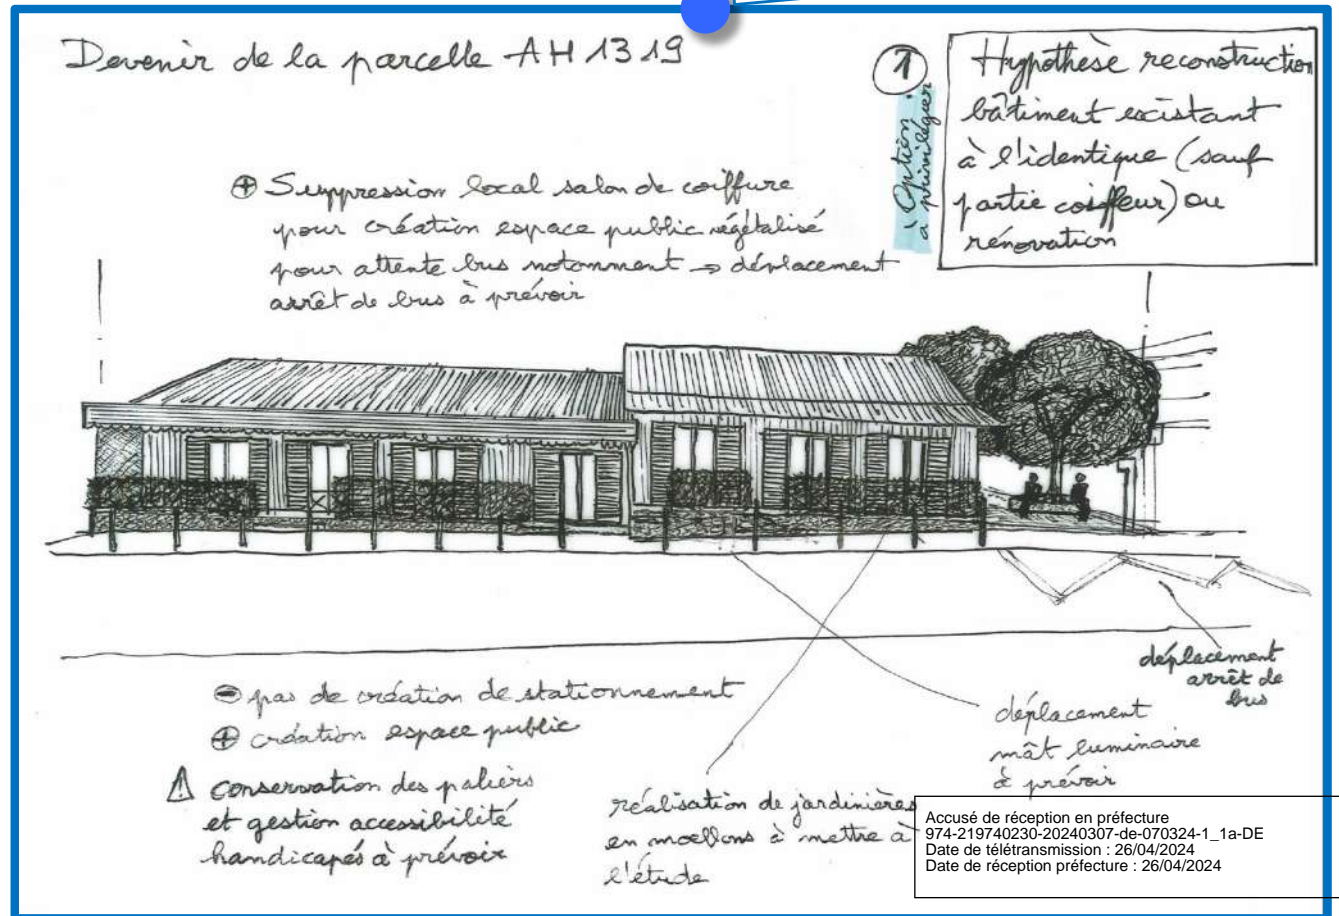 Devenir de la parcelle AH 1319
1
Option
à privilégier
Hypothèse reconstruction
bâtiment existant
à l'identique (sauf
partie coiffeur) ou
rénovation
⊕ Suppression local salon de coiffure
pour création espace public végétalisé
pour attente bus notamment → déplacement
arrêt de bus à prévoir
⊖ pas de création de stationnement
⊕ création espace public
⚠ conservation des paliers
et gestion accessibilité
handicapés à prévoir
réalisation de jardinières
en moellons à mettre à
l'étude
déplacement
mât luminaire
à prévoir
déplacement
arrêt de
bus
Accusé de réception en préfecture
974-219740230-20240307-de-070324-1_1a-DE
Date de télétransmission : 26/04/2024
Date de réception préfecture : 26/04/2024